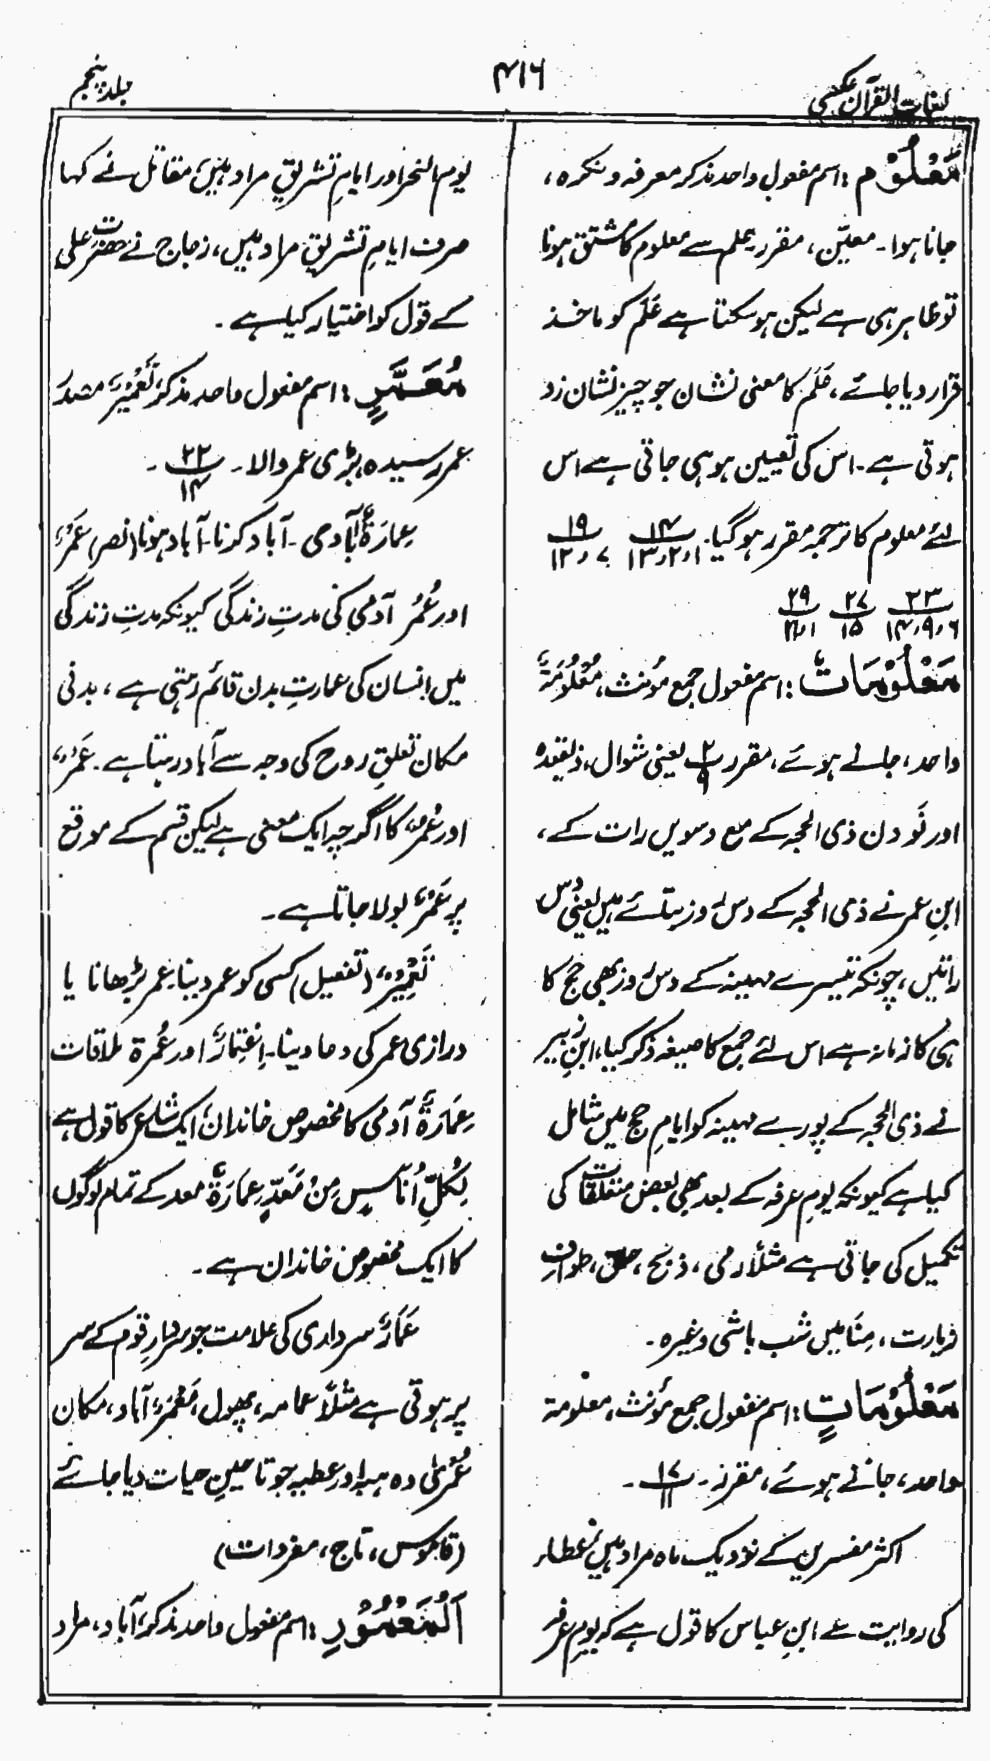 لغات القرآن عکسی
۴۱۶
جلد پنجم
مَعْلُوْمٌ: اسم مفعول واحد مذکر معرفہ و نکرہ،
جانا ہوا۔ معیّن، مقرر۔ علم سے معلوم کا مشتق ہونا
تو ظاہر ہی ہے لیکن ہو سکتا ہے عَلَم کو ماخذ
قرار دیا جائے، عَلَم کا معنی نشان جو چیز نشان زد
ہوتی ہے۔ اس کی تعیین ہو ہی جاتی ہے اس
لئے معلوم کا ترجمہ مقرر ہوگیا۔ ۱۴ / ۱،۲،۱۳ ۱۹ / ۷،۱۲
۲۳ / ۶،۹،۱۴ ۲۷ / ۱۵ ۲۹
مَعْلُوْمَاتٌ: اسم مفعول جمع مؤنث، مَعْلُوْمَةٌ
واحد، جانے ہوئے، مقرر ۲ / ۹ یعنی شوال، ذیقعدہ
اور نَو دن ذی الحجہ کے مع دسویں رات کے،
ابنِ عمر نے ذی الحجہ کے دس روز بتائے ہیں یعنی دس
راتیں، چونکہ تیسرے مہینہ کے دس روز بھی حج کا
ہی کا زمانہ ہے اس لئے جمع کا صیغہ ذکر کیا، ابنِ زبیر
نے ذی الحجہ کے پورے مہینہ کو ایامِ حج میں شامل
کیا ہے کیونکہ یومِ عرفہ کے بعد بھی بعض متعلقات کی
تکمیل کی جاتی ہے مثلاً رمی، ذبح، حلق، طوافِ
زیارت، مِنٰا میں شب باشی وغیرہ۔
مَعْلُوْمَاتٍ: اسم مفعول جمع مؤنث، معلومۃ
واحد، جانے ہوئے، مقرر۔ ۱۷ / ۱۱ ۔
اکثر مفسرین کے نزدیک ماہ مراد ہیں، عطار
کی روایت سے ابنِ عباس کا قول ہے کہ یومِ عرفہ
یوم النحر اور ایامِ تشریق مراد ہیں، مقاتل نے کہا
صرف ایامِ تشریق مراد ہیں، زجاج نے حضرت علی
کے قول کو اختیار کیا ہے۔
مُعَمَّرٍ: اسم مفعول واحد مذکر، تَعْمِیْرٌ مصدر
عمر رسیدہ، بڑی عمر والا۔ ۲۲ / ۱۴ ۔
عِمَارَةٌ آبادی۔ آباد کرنا۔ آباد ہونا (نصر) عَمْرٌ
اور عُمُر آدمی کی مدتِ زندگی کیونکہ مدتِ زندگی
میں انسان کی عمارتِ بدن قائم رہتی ہے، بدنی
مکان تعلقِ روح کی وجہ سے آباد رہتا ہے۔ عَمْرٌ
اور عُمُرٌ کا اگرچہ ایک معنی ہے لیکن قسم کے موقع
پر عَمْرٌ بولا جاتا ہے۔
تَعْمِیْرٌ، (تفعیل) کسی کو عمر دینا۔ عمر بڑھانا یا
درازی عمر کی دعا دینا۔ اِعْتِمَارٌ اور عُمْرۃ ملاقات
عِمَارَةٌ آدمی کا مخصوص خاندان، ایک شاعر کا قول ہے
لِکُلِّ اُنَاسٍ مِنْ مَعَدٍّ عِمَارَةٌ معد کے تمام لوگوں
کا ایک مخصوص خاندان ہے۔
عَمَارٌ سرداری کی علامت جو سردارِ قوم کے سر
پر ہوتی ہے مثلاً عمامہ، پھول، مَعْمَرٌ، آباد، مکان
عُمْرٰی وہ ہبہ اور عطیہ جو تا حینِ حیات دیا جائے
(قاموس، تاج، مفردات)
اَلْمَعْمُوْرِ: اسم مفعول واحد مذکر، آباد، مراد